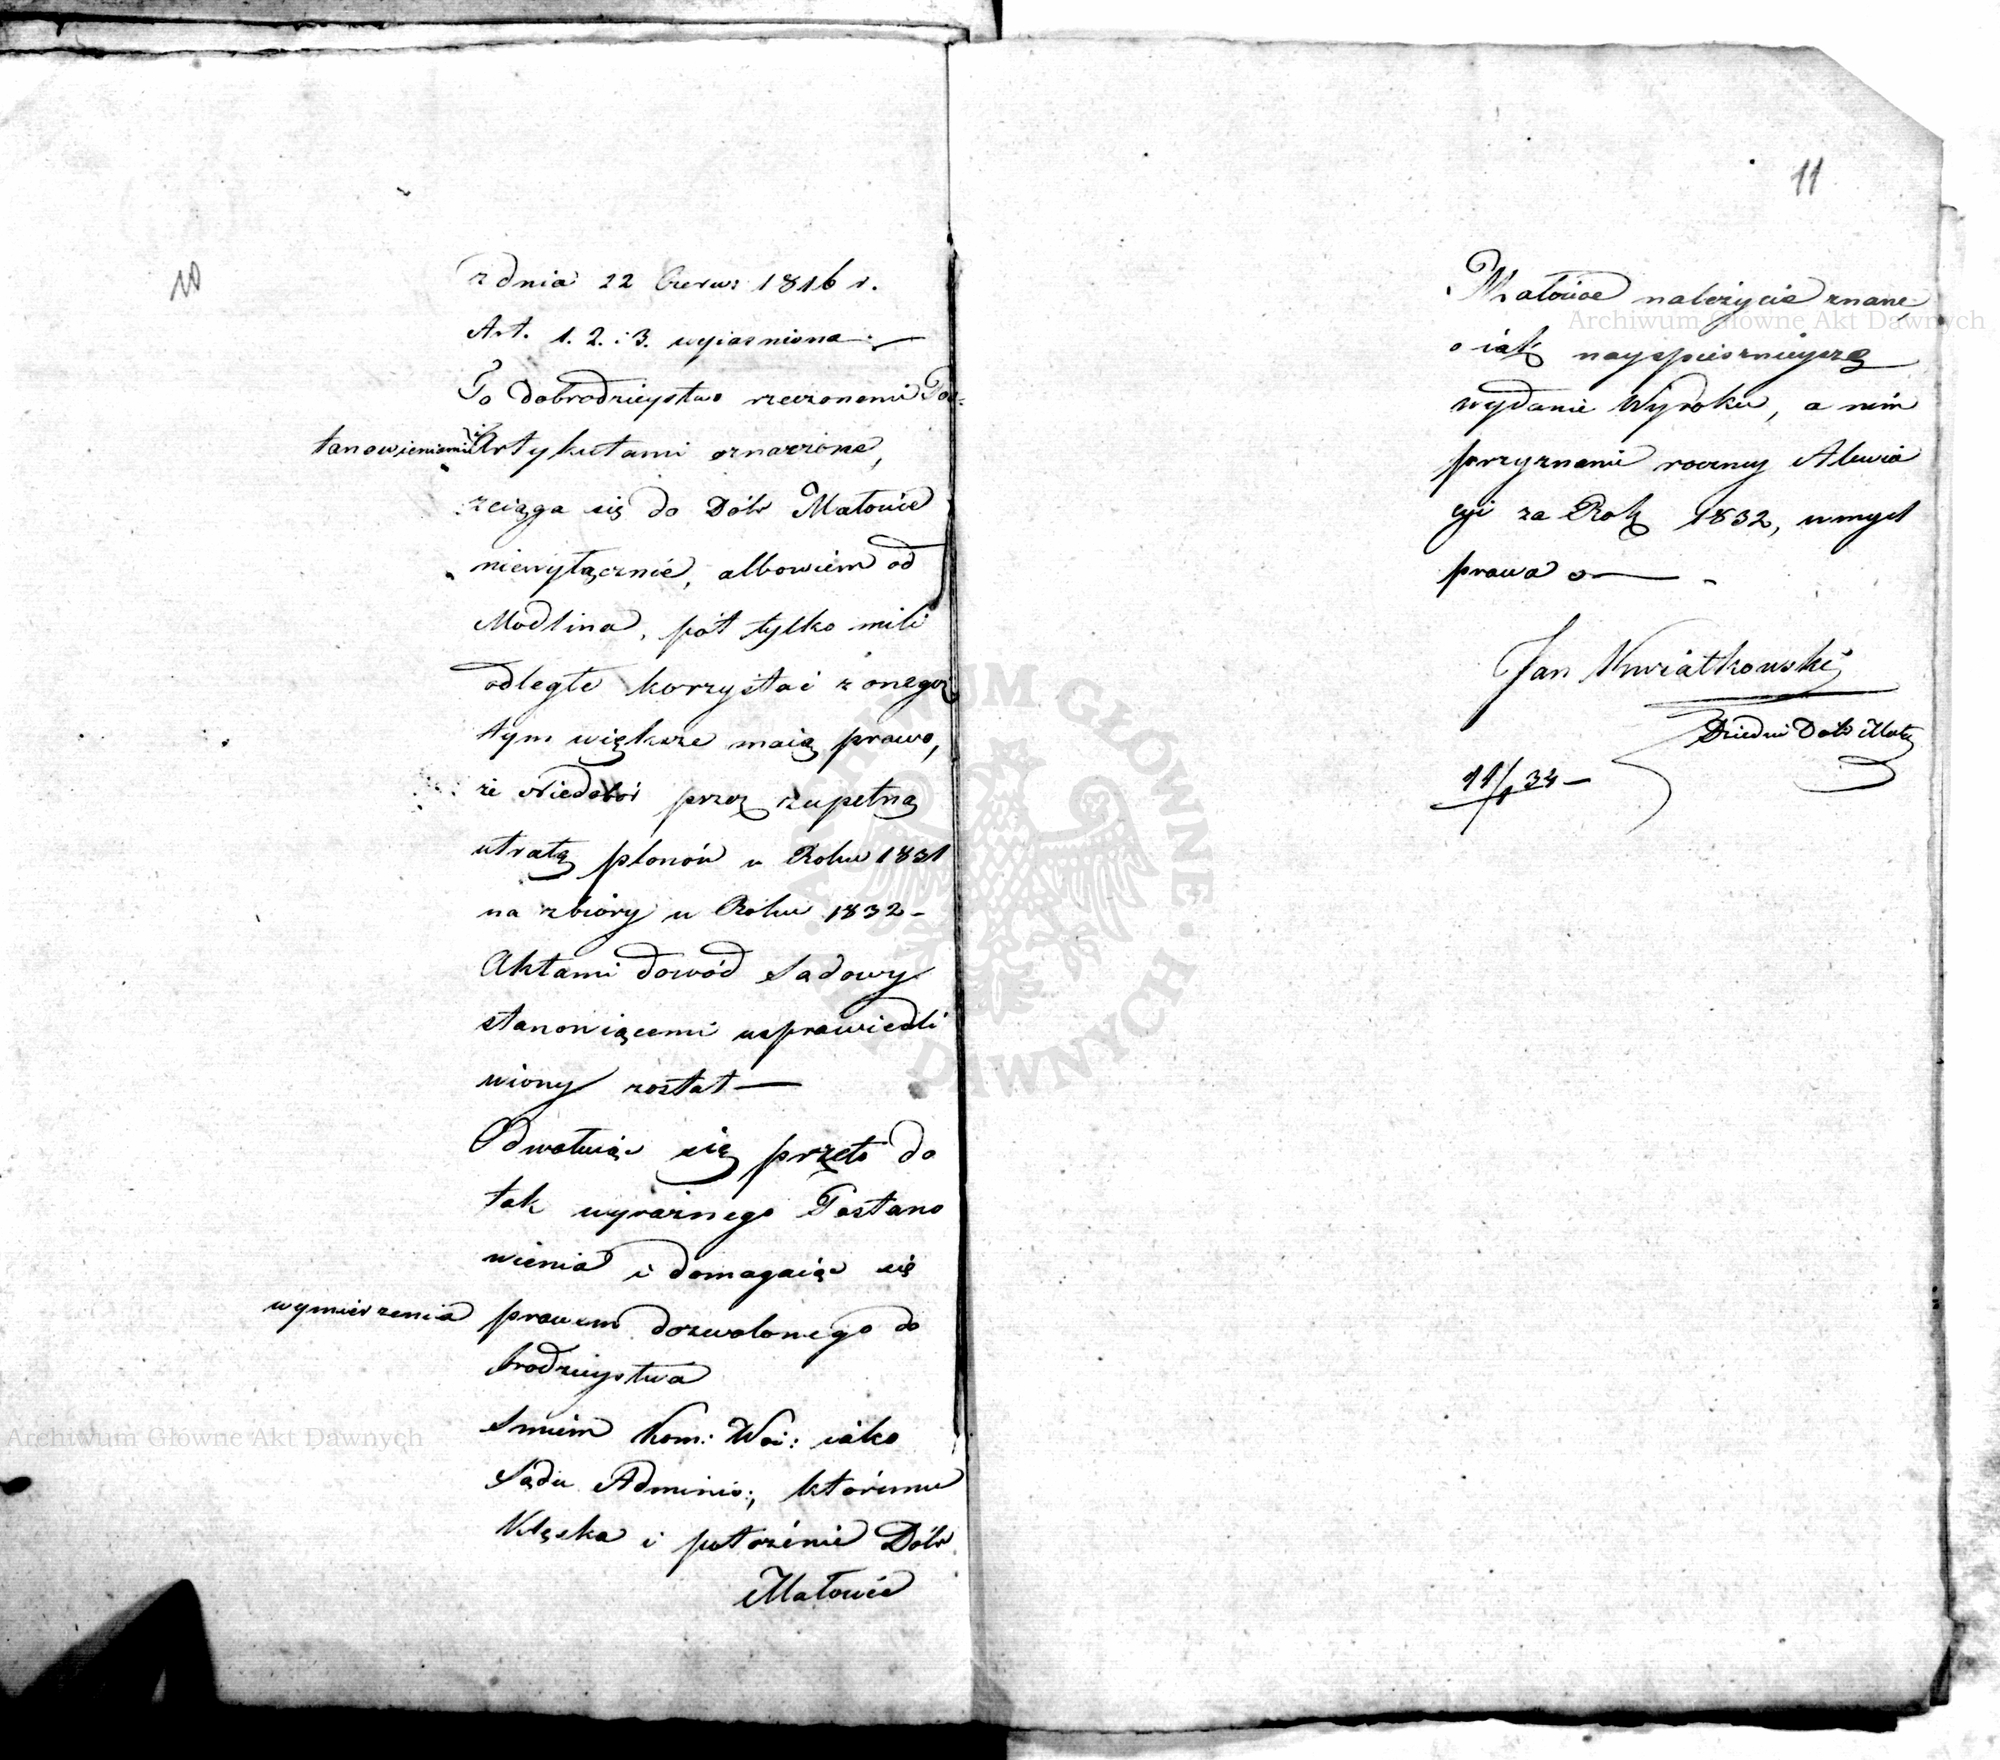 10
z dnia 22 Czerw: 1816 r.
Art. 1. 2. i 3. wyiasniona. —
To dobrodzieystwo rzeczonemi Pos-
tanowieniem i Artykułami oznaczone,
ściąga się do Dóbr Małocie
niewyłącznie, albowiem od
Modlina, pół tylko mili
odległe korzystać z onego
tym większe maią prawo,
że Niedobór przez zupełną
utratę plonów w Roku 1831
na zbióry w Roku 1832 -
Aktami dowód Sądowy
stanowiącemi usprawiedli
wiony został —
Odwołuiąc się przeto do
tak wyraźnego Postano
wienia i domagaiąc się
wymierzenia prawem dozwolonego do
brodzieystwa
Smiem Kom: Woi: iako
Sądu Adminis:, któremu
Klęska i położenie Dóbr
Małocie
11
Małocice należycie znane,
o iak nayspiesznieysze
wydanie Wyroku, a nim
przyznanie roczney Alewia
cyi za Rok 1832, w mysl
prawa —
Jan Kwiatkowski
Dziedzic Dóbr Małoc
11/ 34 -
Archiwum Główne Akt Dawnych
Archiwum Główne Akt Dawnych
ARCHIWUM GŁÓWNE AKT DAWNYCH